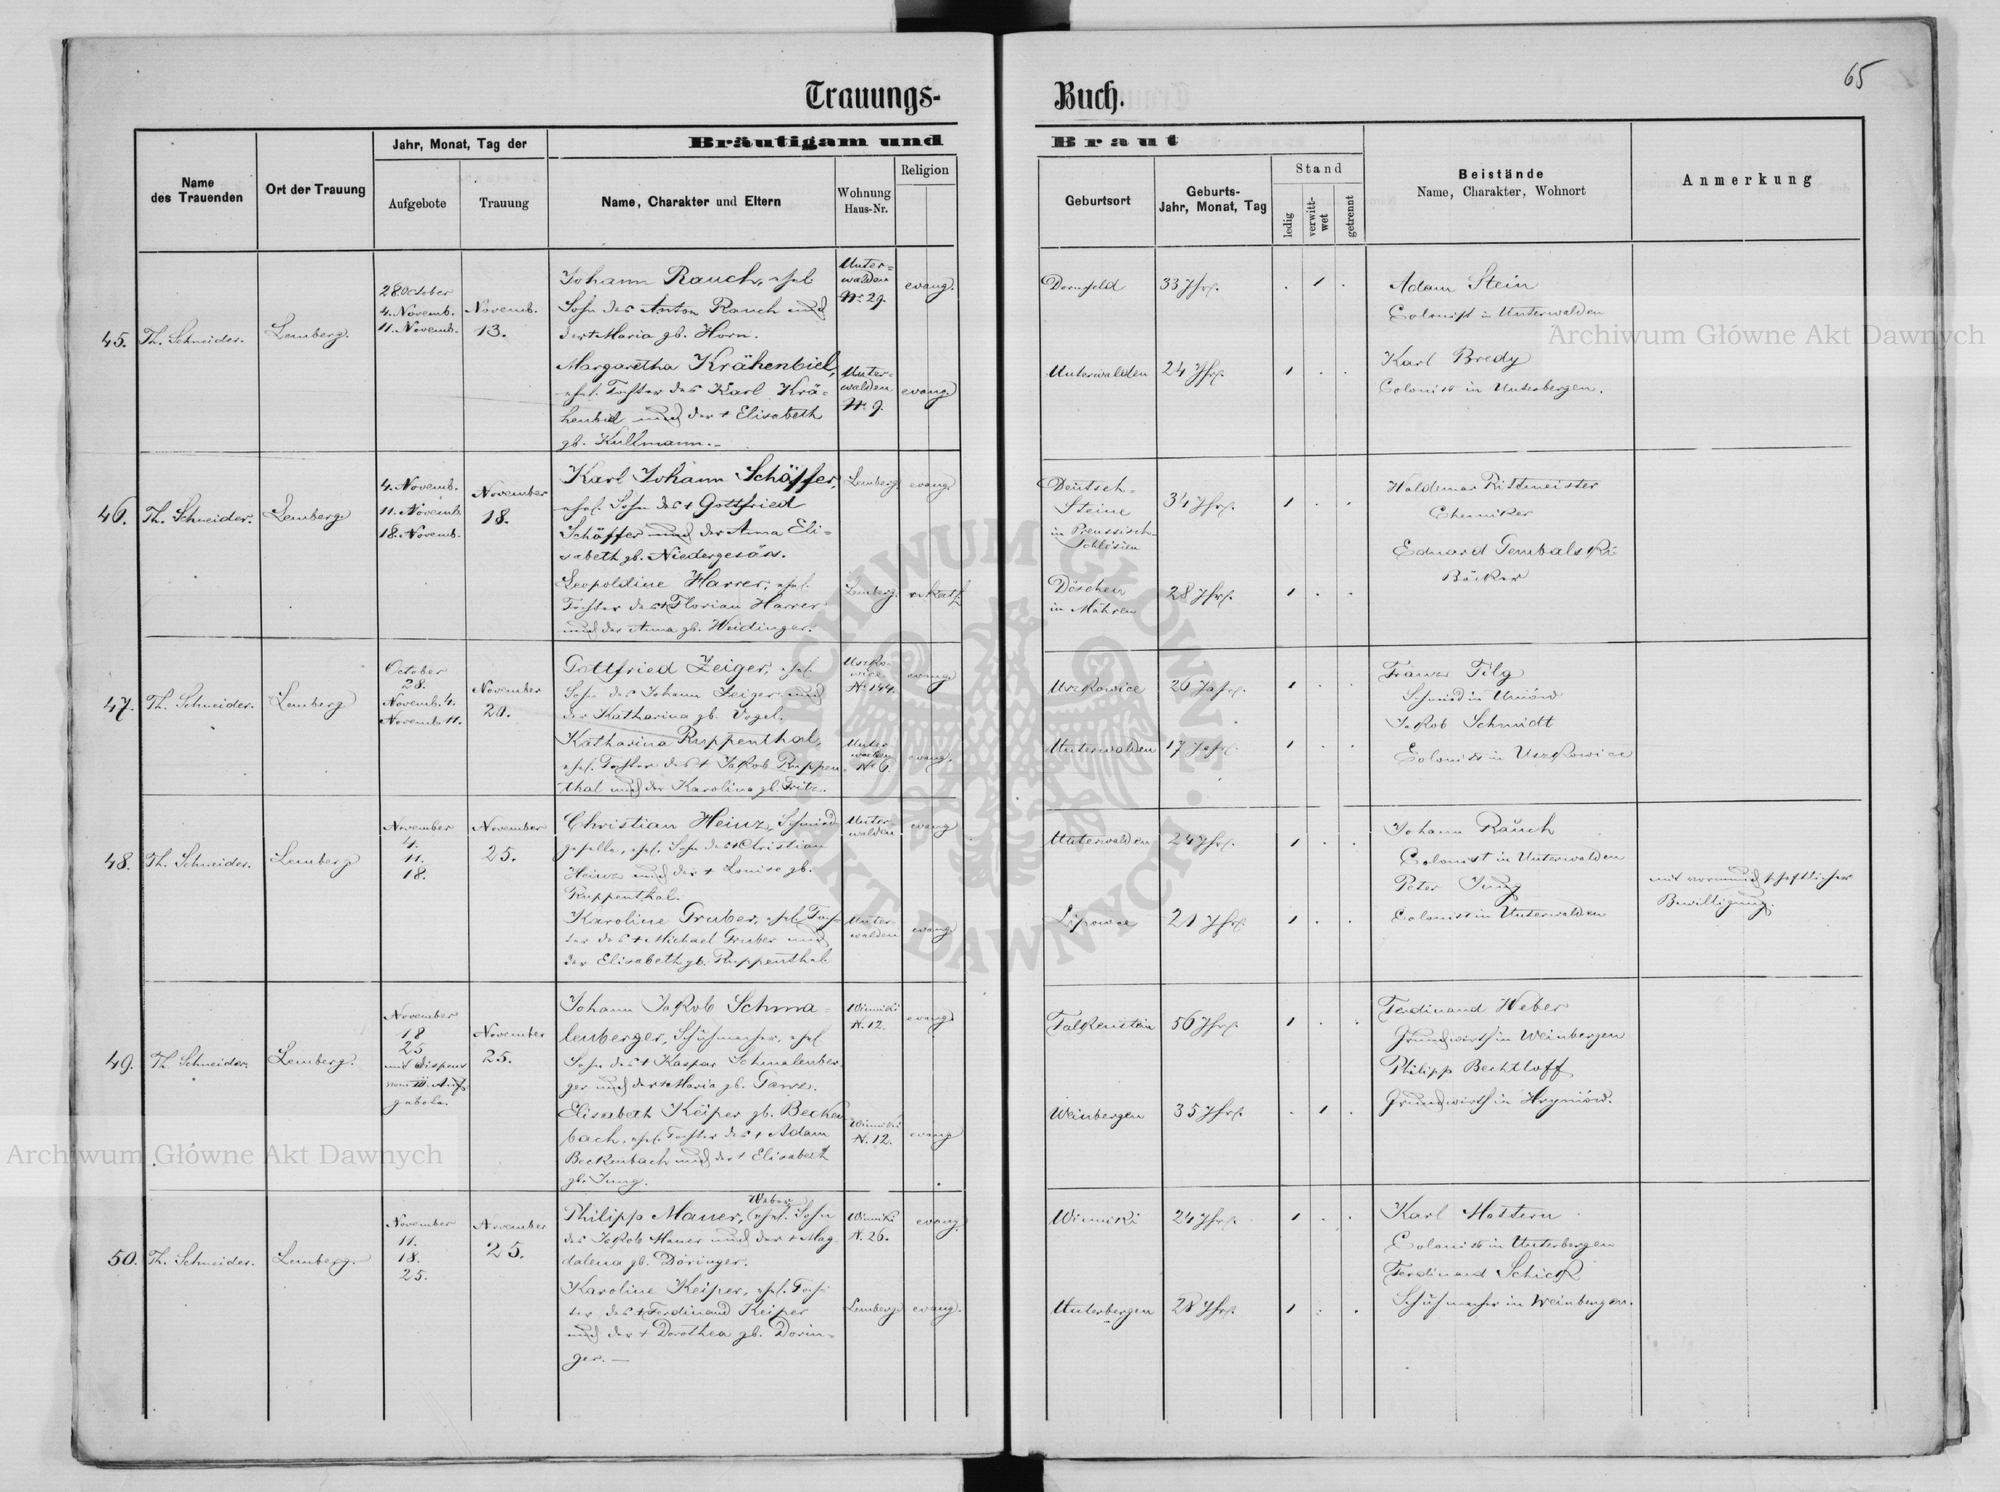 65
Trauungs-Buch.
Bräutigam und Braut
Name des Trauenden
Ort der Trauung
Jahr, Monat, Tag der
Aufgebote
Trauung
Name, Charakter und Eltern
Wohnung Haus-Nr.
Religion
Geburtsort
Geburts-
Jahr, Monat, Tag
Stand
ledig
verwitt-
wet
getrennt
Beistände
Name, Charakter, Wohnort
Anmerkung
45. Th. Schneider. Lemberg.
28 October
4. Novemb.
11. Novemb.
Novemb.
13.
Johann Rauch, ehel.
Sohn des Anton Rauch und
der + Maria gb. Horn.
Unter-
walden
Nr. 29.
evang.
Dornfeld 33 Jhr.
Adam Stein
Colonist in Unterwalden
Margaretha Krähenbiel,
ehel. Tochter des Karl Krä-
henbiel und der + Elisabeth
gb. Kullmann.
Unter-
walden
Nr. 9.
evang.
Unterwalden 24 Jhr.
Karl Bredy
Colonist in Unterbergen.
46. Th. Schneider. Lemberg
4. Novemb.
11. Novemb.
18. Novemb.
November
18.
Karl Johann Schöffer,
ehel. Sohn des + Gottfried
Schöffer und der Anna Eli-
sabeth gb. Niedergesäss.
Lemberg evang.
Deutsch-
Steine
in Preussisch-
Schlesien
34 Jhr.
Waldemar Rittmeister
Chemiker
Leopoldine Harrer, ehel.
Tochter des + Florian Harrer
und der Anna gb. Weidinger.
Lemberg. r. kath.
Döschen
in Mähren
28 Jhr.
Eduard Gembalski
Bäcker
47. Th. Schneider. Lemberg
October
28.
Novemb. 4.
Novemb. 11.
November
20.
Gottfried Zeiger, ehel.
Sohn des Johann Zeiger und
der Katharina gb. Vogel.
Uszko-
wice
Nr. 144.
evang.
Uszkowice 26 Jahr.
Franz Tilg
Schmied in Unión
Katharina Ruppenthal,
ehel. Tochter des + Jakob Ruppen
thal und der Karolina gb. Fritz.
Unter
walden
Nr. 6.
evang.
Unterwalden 17 Jahr.
Jakob Schmidt
Colonist in Uszkowice
48. Th. Schneider. Lemberg
November
4.
11.
18.
November
25.
Christian Heinz, Schmied
geselle, ehel. Sohn des + Christian
Heinz und der + Louise gb.
Ruppenthal.
Unter-
walden
evang
Unterwalden 24 Jhr.
Johann Rauch
Colonist in Unterwalden
Karoline Gruber, ehel. Toch
ter des + Michael Gruber und
der Elisabeth gb. Ruppenthal.
Unter-
walden
evang
Lipowce 21 Jhr.
Peter Jung
Colonist in Unterwalden
mit vormundschaftlicher
Bewilligung.
49. Th. Schneider. Lemberg.
November
18
25
mit Dispens
vom III. Auf-
gebote.
November
25.
Johann Jakob Schma-
lenberger, Schuhmacher, ehel
Sohn des + Kaspar Schmalenber
ger und der + Maria gb. Ganz.
Winniki
N. 12.
evang
Falkenstein 56 Jhr.
Ferdinand Weber
Grundwirth in Weinbergen
Elisabeth Keiper gb. Becken
bach, ehel. Tochter des + Adam
Beckenbach und der + Elisabeth
gb. Jung.
Winniki
N. 12.
evang
Weinbergen 35 Jhr.
Philipp Bechtloff
Grundwirth in Hryniów.
50. Th. Schneider. Lemberg.
November
11.
18.
25.
November
25.
Weber
Philipp Mauer, ehel. Sohn
des Jakob Mauer und der + Mag
dalena gb. Döringer.
Winniki
N. 26.
evang.
Winniki 24 Jhr.
Karl Mattern
Colonist in Unterbergen
Karoline Keiper, ehel. Toch
ter des + Ferdinand Keiper
und der + Dorothea gb. Dorin-
ger. —
Lemberg evang.
Unterbergen 28 Jhr.
Ferdinand Schick
Schuhmacher in Weinbergen.
Archiwum Główne Akt Dawnych
Archiwum Główne Akt Dawnych
ARCHIWUM GŁÓWNE AKT DAWNYCH